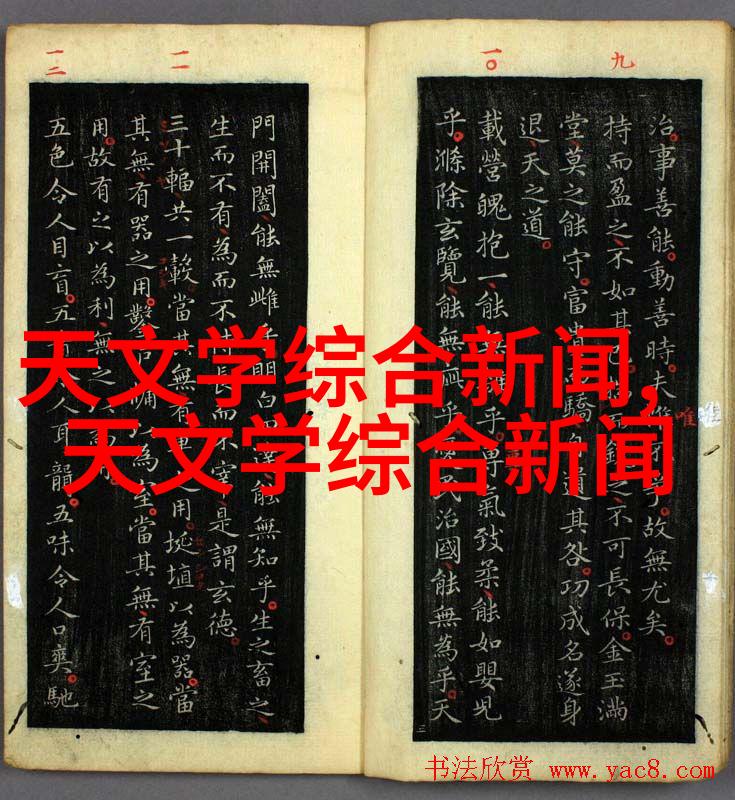 天文学综合新闻,
天文学综合新闻
九
治。事善能。動善時。夫故無尤矣。
唯
持而盈之、不如其之、不可長保。金玉滿
堂、莫之能守。富貴驕自遺其咎。功成名遂身
退、天之道。
一〇
載營魄抱一、能無離乎。專氣致柔、能如嬰児
乎。滌除玄覽、能無疵乎。民治國、能無為乎。天
門開闔、能無雌乎。明白四達、能無知乎。生之畜之、
生而不有、為而不恃、長而不宰、是謂玄德。
一一
三十輻、共一轂。當其無、有車之用。埏埴以為器。當
其無、有器之用。鑿戶牖以為室。當其無、有室之
用。故有之以為利、無之以
一二
五色令人目盲。五音令人耳聾。五味令人口爽。馳
书法欣赏 www.yac8.com